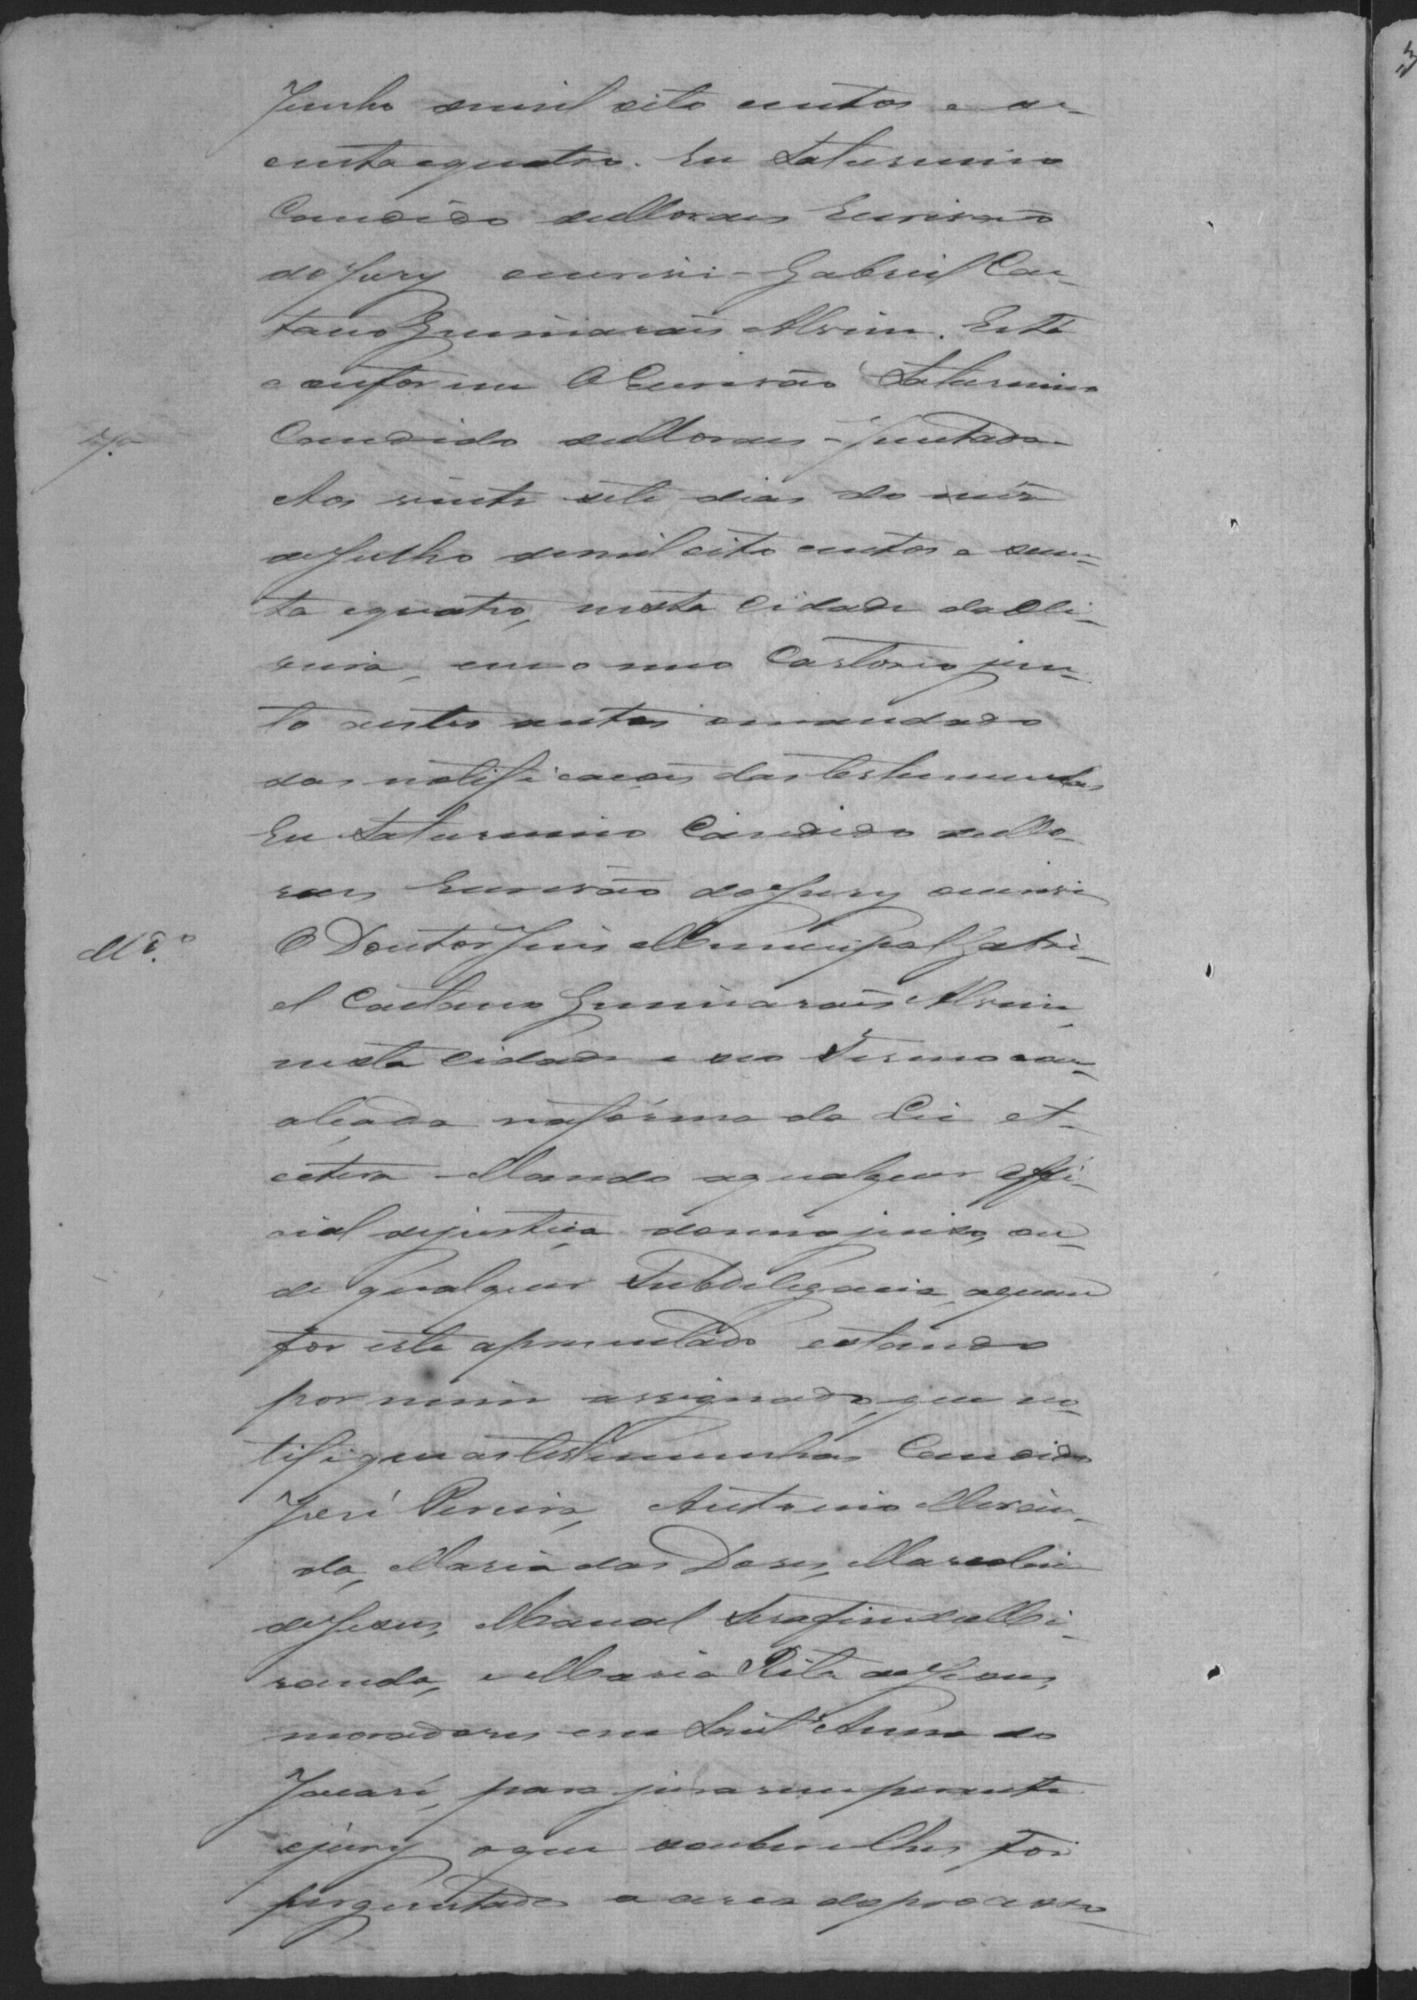 Junho demil oito centos e se-
centa equatro. Eu Saturnino
Candido deMoraes Escrivão
doJury oescrivi - Gabriel Cae-
tano Guimarães Alvim. Está
conforme O Escrivão Saturnino
Candido deMoraes - Juntada
Jª
Aos vinte sete dias do mês
deJulho demil oito centos e secen-
ta equatro, nesta Cidade da Oli-
veira, em o meo Cartorio jun-
to aestes autos omandado
das notificações das testemunhas
Eu Saturnino Candido deMo-
raes Escrivão doJury oescrivi
Mdº
O Doutor Juis Municipal Gabri-
el Caetano Guimarães Alvim
nesta Cidade e seo Termo com
alçada naforma da Lei et-
cetera - Mando aqualquer offi-
cial dejustiça demeojuiso, ou
de qualquer Subdelegacia, aquem
for este apresentado estando
por mim assignado, que no-
tifique as testemunhas Candido
José Pereira, Antonio Miran-
da, Maria das Dores,
deJesus, Manoel Serafim deMi-
randa, e Maria Rita deJesus,
moradores em Sant'Anna do
Jacaré, para jurarem perante
ojury oque souberem elhes for
perguntado a cerca doprocesso